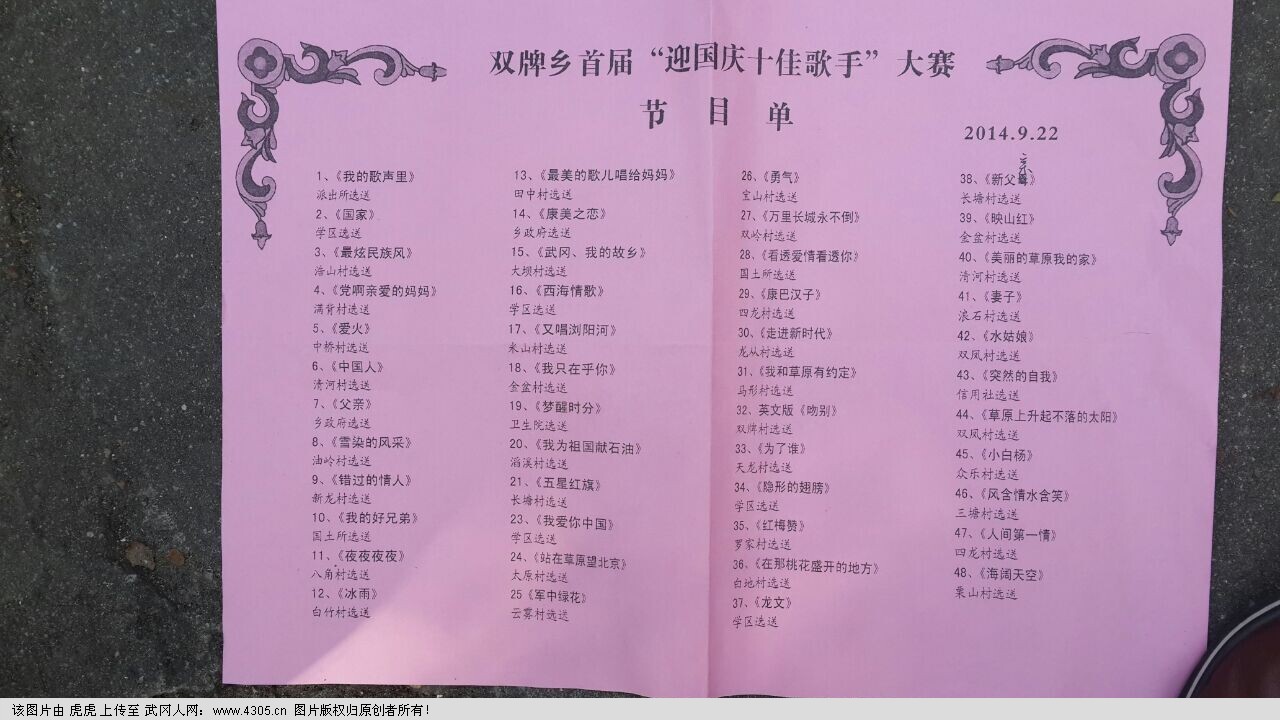 双牌乡首届“迎国庆十佳歌手”大赛
节目单
2014.9.22
1、《我的歌声里》
派出所选送
2、《国家》
学区选送
3、《最炫民族风》
浩山村选送
4、《党啊亲爱的妈妈》
满背村选送
5、《爱火》
中桥村选送
6、《中国人》
清河村选送
7、《父亲》
乡政府选送
8、《雪染的风采》
油岭村选送
9、《错过的情人》
新龙村选送
10、《我的好兄弟》
国土所选送
11、《夜夜夜夜》
八角村选送
12、《冰雨》
白竹村选送
13、《最美的歌儿唱给妈妈》
田中村选送
14、《康美之恋》
乡政府选送
15、《武冈、我的故乡》
大坝村选送
16、《西海情歌》
学区选送
17、《又唱浏阳河》
米山村选送
18、《我只在乎你》
金盆村选送
19、《梦醒时分》
卫生院选送
20、《我为祖国献石油》
滔溪村选送
21、《五星红旗》
长塘村选送
23、《我爱你中国》
学区选送
24、《站在草原望北京》
太原村选送
25《军中绿花》
云雾村选送
26、《勇气》
宝山村选送
27、《万里长城永不倒》
双岭村选送
28、《看透爱情看透你》
国土所选送
29、《康巴汉子》
四龙村选送
30、《走进新时代》
龙从村选送
31、《我和草原有约定》
马形村选送
32、英文版《吻别》
双牌村选送
33、《为了谁》
天龙村选送
34、《隐形的翅膀》
学区选送
35、《红梅赞》
罗家村选送
36、《在那桃花盛开的地方》
白地村选送
37、《龙文》
学区选送
38、《新父》
长塘村选送
39、《映山红》
金盆村选送
40、《美丽的草原我的家》
清河村选送
41、《妻子》
浪石村选送
42、《水姑娘》
双凤村选送
43、《突然的自我》
信用社选送
44、《草原上升起不落的太阳》
双凤村选送
45、《小白杨》
众乐村选送
46、《风含情水含笑》
三塘村选送
47、《人间第一情》
四龙村选送
48、《海阔天空》
栗山村选送
该图片由 虎虎 上传至 武冈人网：www.4305.cn 图片版权归原创者所有！